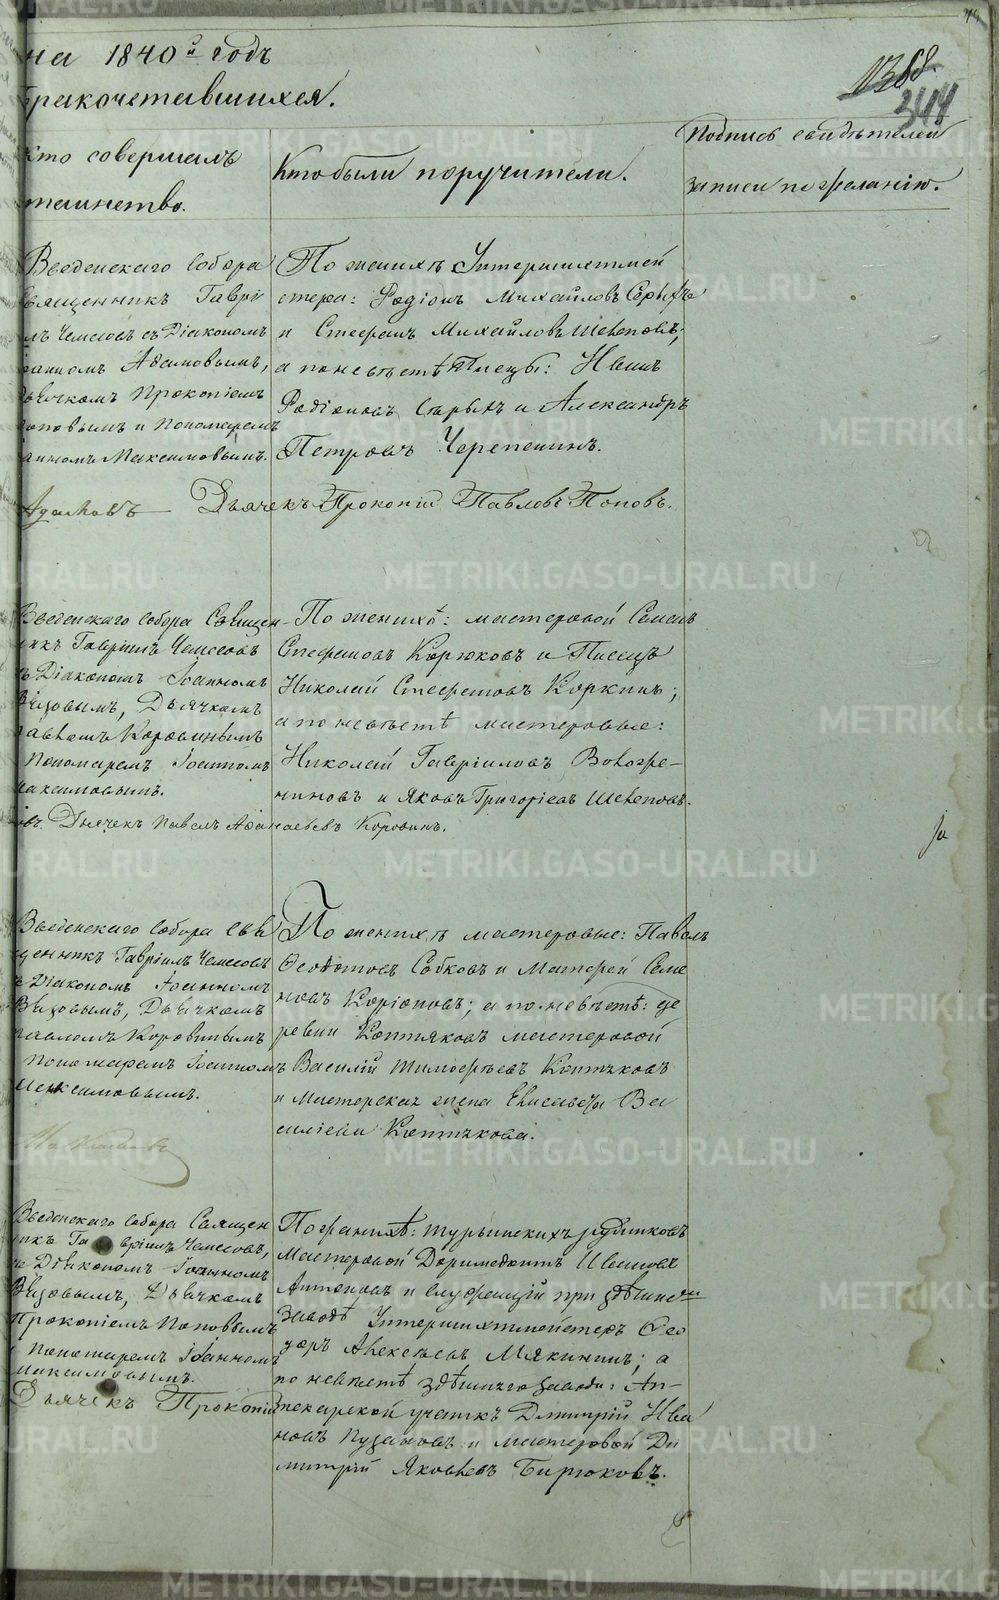 на 1840й годъ
бракочетавшихся.
1388.
344
Кто совершалъ
таинство.
Кто были поручители.
Подпись свидѣтелей
записи по желанію.
Введенскаго Собора
Священникъ Гаврі
илъ Чемесовъ съ Діакономъ
Іоанномъ Адамовымъ,
Дьячкомъ Прокопіемъ
Поповымъ и Пономаремъ
Іоанномъ Максимовымъ.
По женихѣ Унтершихтмей
стера: Родіонъ Михайловъ
и Стефанъ Михайловъ Щепеновъ,
а по невѣстѣ Писцы: Иванъ
Родіоновъ Старыхъ и Александръ
Петровъ Черепенинъ.
Адамовъ Дьячекъ Прокопій Павловъ Поповъ.
Введенскаго Собора Священ-
никъ Гавріилъ Чемесовъ
съ Діакономъ Іоанномъ
Павломъ Коровинымъ
Пономаремъ Іоанномъ
Максимовымъ.
По женихѣ: мастеровой Семенъ
Стефановъ Корюковъ и Писецъ
Николай Стефановъ Коркинъ;
а по невѣстѣ мастеровые:
Николай Гавріиловъ Вологже-
ниновъ и Яковъ Григорьевъ Щепеновъ.
Дьячекъ Павелъ Афанасьевъ Коровинъ.
Введенскаго Собора Свя
щенникъ Гавріилъ Чемесовъ
съ Діакономъ Іоанномъ
Дьячкомъ
Павломъ Коровинымъ
Пономаремъ Іоанномъ
Максимовымъ.
По женихѣ мастеровые: Павелъ
Ѳеодотовъ Собковъ и Матфей Семе
новъ Коріоновъ; а по невѣстѣ: де
ревни Коптяковъ мастеровой
Василій Тимофѣевъ Коптяковъ
и Мастерская жена Елисавета Ва
сильева Коптякова.
Введенскаго Собора Священ
никъ Гавріилъ Чемесовъ,
съ Діакономъ Іоанномъ
Дьячкомъ
Прокопіемъ Поповымъ
Пономаремъ Іоанномъ
Максимовымъ.
Дьячекъ Прокопій
По женихѣ: Турьинскихъ рудниковъ
Мастеровой Доримедонтъ Ивановъ
Антоновъ и служащій при здѣшнемъ
Заводѣ Унтершихтмейстеръ Ѳео
доръ Алексѣевъ Мякининъ; а
по невѣстѣ здѣшняго завода: Ап-
текарской ученикъ Дмитрій Ива
новъ Пузановъ и мастеровой Ди
митрій Яковлевъ Бирюковъ.
METRIKI.GASO-URAL.RU